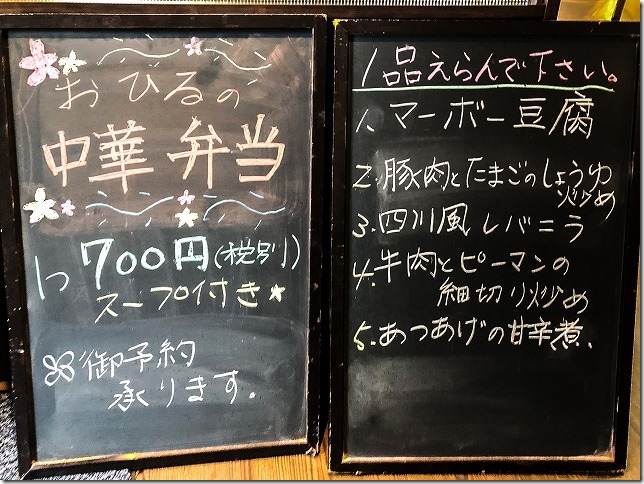 おひるの
中華弁当
1つ 700円(税別)
スープ付き
御予約
承ります。
1品えらんで下さい。
1. マーボー豆腐
2. 豚肉とたまごのしょうゆ
炒め
3. 四川風レバニラ
4. 牛肉とピーマンの
細切り炒め
5. あつあげの甘辛煮、